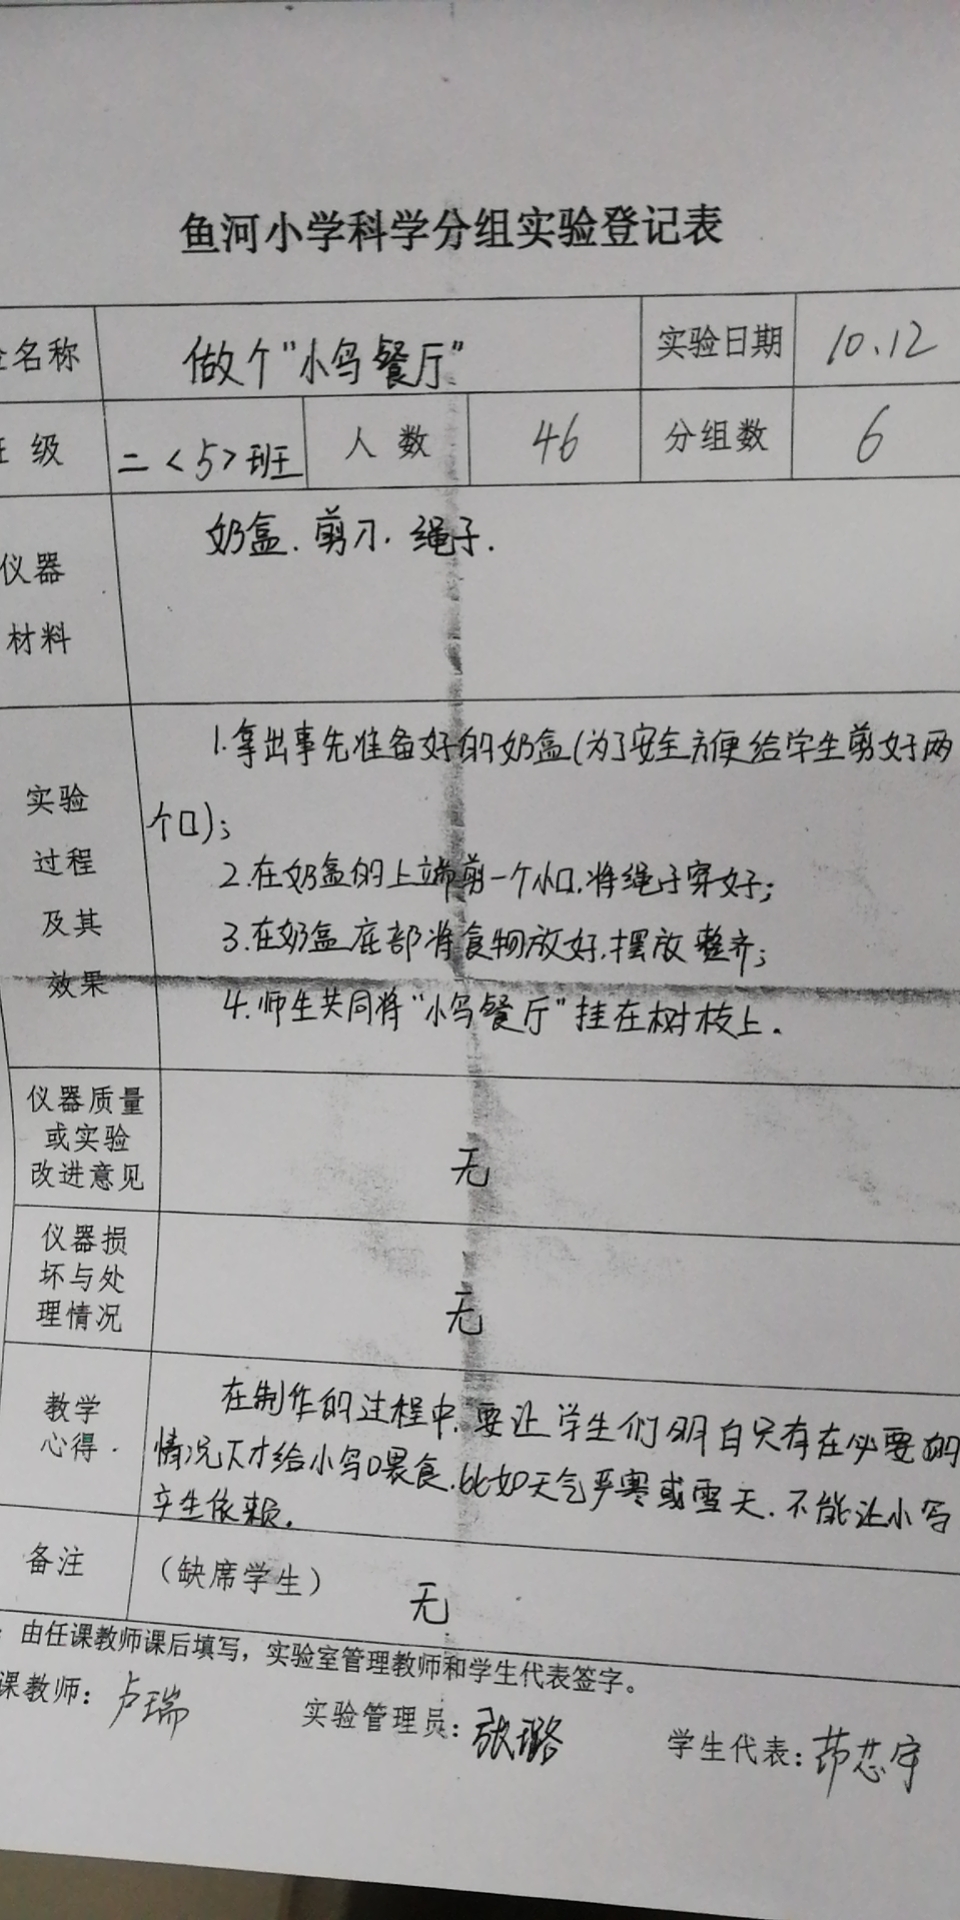 鱼河小学科学分组实验登记表
名称 做个"小鸟餐厅" 实验日期 10.12
级 二<5>班 人数 46 分组数 6
仪器
材料
奶盒.剪刀.绳子.
实验
过程
及其
效果
1.拿出事先准备好的奶盒(为了安全方便给学生剪好两
个口);
2.在奶盒的上端剪一个小口.将绳子穿好;
3.在奶盒底部将食物放好.摆放整齐;
4.师生共同将"小鸟餐厅"挂在树枝上.
仪器质量
或实验
改进意见
无
仪器损
坏与处
理情况
无
教学
心得.
在制作的过程中.要让学生们明白只有在必要的
情况下才给小鸟喂食.比如天气严寒或雪天.不能让小鸟
产生依赖.
备注 (缺席学生) 无
由任课教师课后填写,实验室管理教师和学生代表签字。
课教师:卢瑞 实验管理员:张璐 学生代表:芯宇